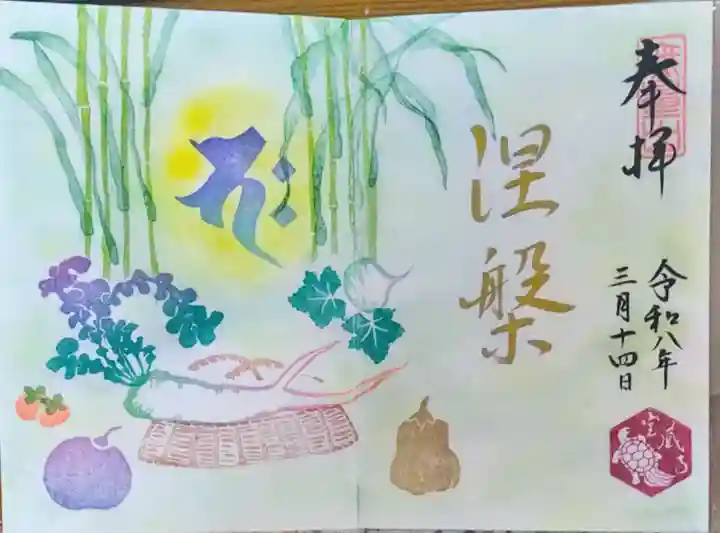 奉拝
涅槃
令和八年
三月十四日